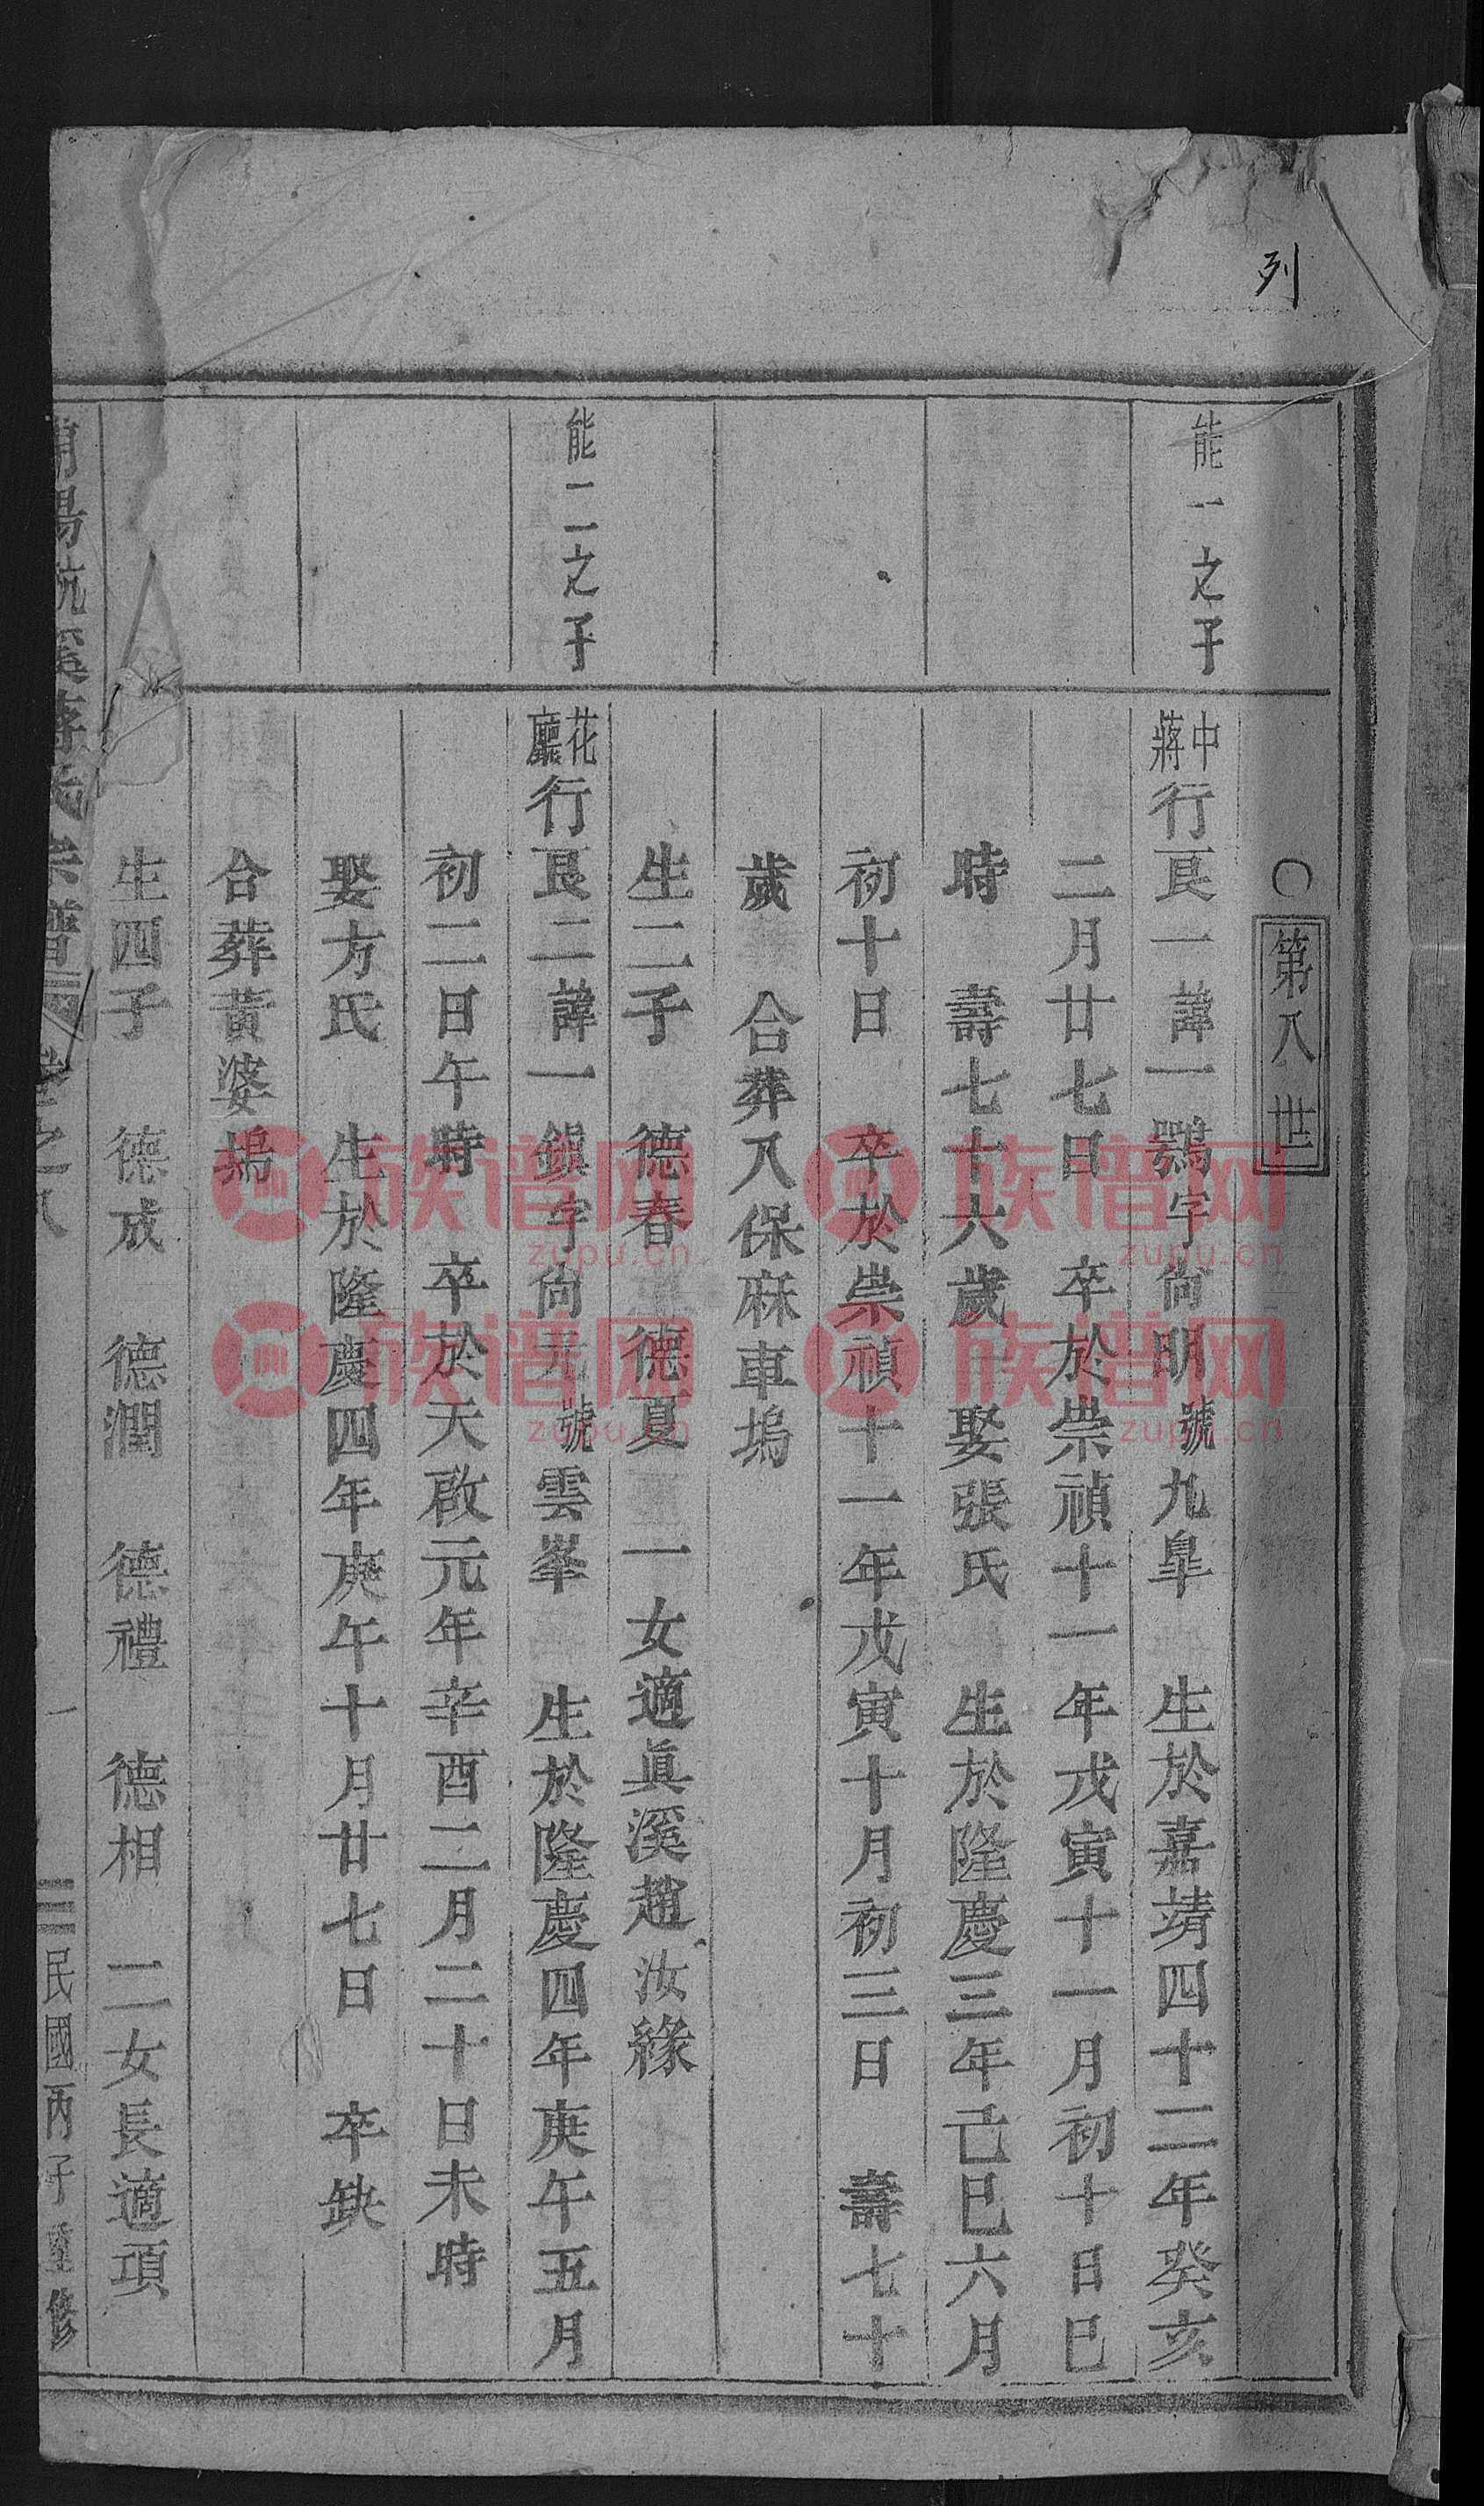 列
○第八世
能一之子
中蔣行艮一諱一鶚字尚明號九臯 生於嘉靖四十二年癸亥
二月廿七日 卒於崇禎十一年戊寅十一月初十日巳
時 壽七十六歲 娶張氏 生於隆慶三年己巳六月
初十日 卒於崇禎十一年戊寅十月初三日 壽七十
歲 合葬八保麻車塢
生二子 德春 德夏 一女適眞溪趙汝緣
能二之子
花廳行艮二諱一鎮字尚元號雲峯 生於隆慶四年庚午五月
初二日午時 卒於天啟元年辛酉二月二十日未時
娶方氏 生於隆慶四年庚午十月廿七日 卒缺
合葬黃婆塢
生四子 德成 德潤 德禮 德相 二女長適項
陽 溪蔣氏宗譜 卷之八 一 民國丙子重修
族谱网
zupu.cn
族谱网
zupu.cn
族谱网
zupu.cn
族谱网
zupu.cn